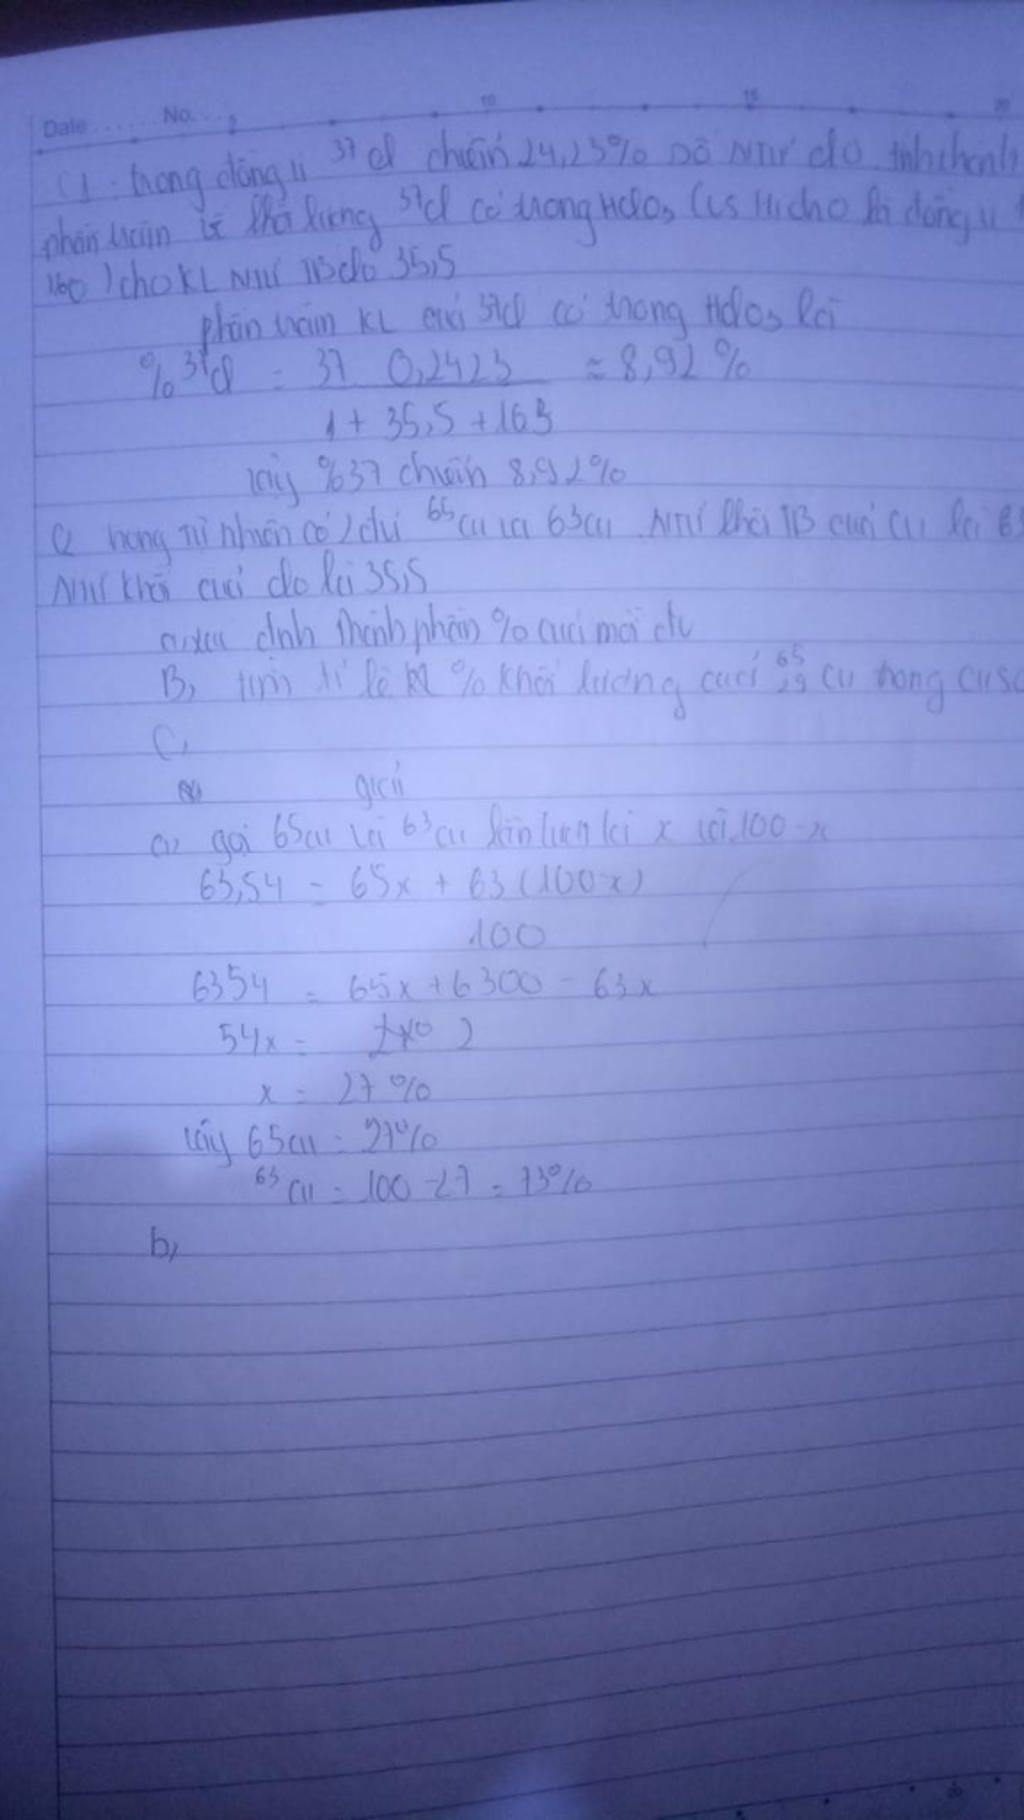 Date ...... No. ...
10 15 20
C1. trong đồng vị ³⁷Cl chiếm 24,23% số NTử clo tính thành
phần trăm về khối lượng ³⁷Cl có trong HClO₃ ( là đồng vị
16O) cho KL NTử TB clo 35,5
phần trăm KL của 37Cl có trong HClO₃ là
% ³⁷Cl = 37. 0,2423 ≈ 8,92 %
1 + 35,5 + 16.3
Vậy %37 chiếm 8,92%
C2 trong Tự nhiên có 2 đvị ⁶⁵Cu và 63Cu. NTử khối TB của Cu là
NTử khối của clo là 35,5
a, xác định thành phần % của mỗi đv
B, tìm tỉ lệ % khối lượng của ⁶⁵₂₉ Cu trong
C,
giải
a, gọi 65Cu và ⁶³Cu lần lượt là x và 100-x
63,54 = 65x + 63 (100-x)
100
6354 = 65x + 6300 - 63x
54x = 2
x = 27 %
Vậy 65Cu = 27%
⁶³Cu = 100 - 27 = 73%
b,